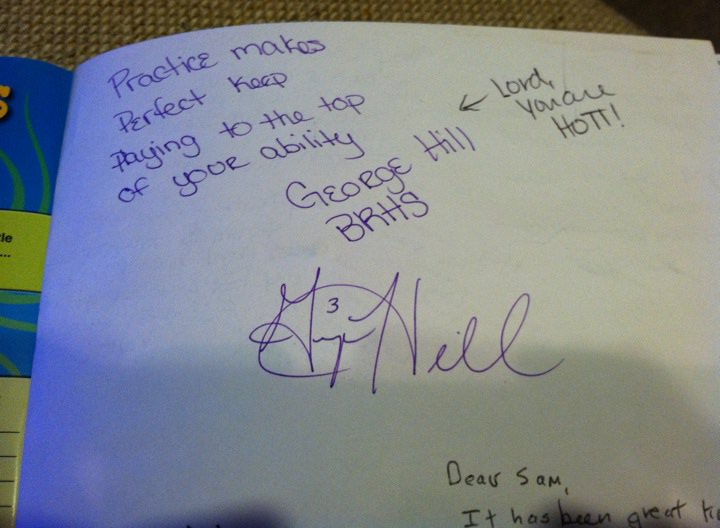 Practice makes
Perfect Keep
Playing to the top
of your ability
George Hill
BRHS
← Lord,
You are
HOTT!
3
George Hill
Dear Sam,
It has been great